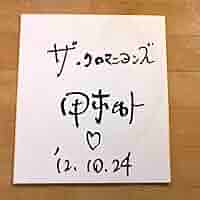 ザ・クロマニヨンズ
甲本ヒロト
♡
'12.10.24